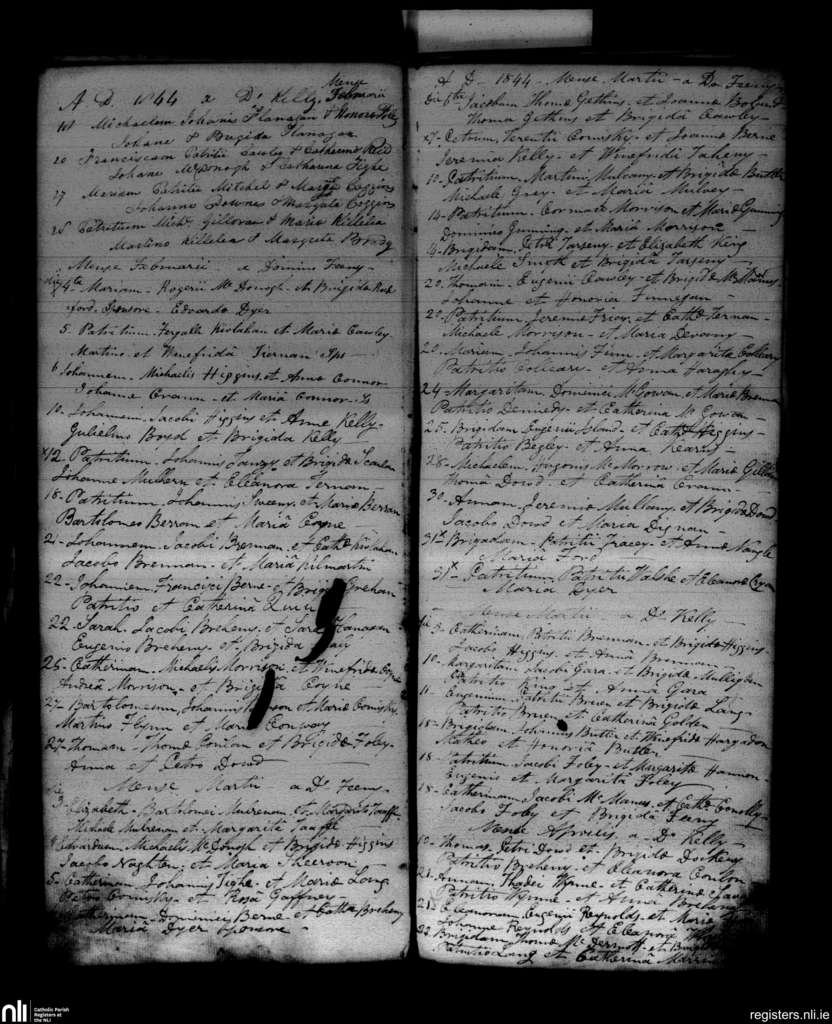 A D. 1844 a Dº Kelly. Mense Febuarii
18 Michaelem Johanis Flanagan & Honora
Johane & Bragida Flanagan
20 Franciscum Patritii Cawley & Catherina
Johane McDonogh & Catharina Tighe
27 Mariam Patritii Mitchel & Margt Coggins
Johannes Downes & Margata Coggins
28 Patritium Michl Gilloran & Maria Killelia
Martino Killelea & Margreta Brady
Mense Febuarii a Domino Feeny
4ta Mariam. Rogerii Mc Donogh. et Brigida
ford. Sponsore. Edvardo Dyer
5. Patritium. Fergalli Kivlahan et Maria Cawley
Martino et Winefridâ Tiernan Sps
6 Johannem. Michaelis Higgins. et Anna Connor
Johanne Crann. et Mariâ Connor. S
10. Johannem. Jacobi Higgins et Anna Kelly.
Julielmo Breed et Brigida Kelly
12. Patritium. Johannis Tansy. et Brigida Scanlan
Johanne Mulhern et Eleanora Ternan
18. Patritium. Johannis Sweeny. et Maria Berran
Bartolomeo Berran et Mariâ Coyne
21. Johannem. Jacobi Brennan. et Cathª Kivlahan
Jacobo Brennan. et Mariâ Kilmartin
22. Johannem. Francisci Berne. et Brehan
Patritio et Catherinâ
22. Sarah. Jacobi Breheny. et Sara Hanasan
Eugenio Breheny. et Brigida
25. Catherinam. Michaelis Morrison. et Winefrida Coyne
Andreâ Morrison. et Brigidâ Coyne
27. Bartolomeum. Johannis et Maria Comisky
Martino Flynn et Maria Conway
27. Thomam. Thoma Conlon et Brigida Foley.
Anna et Petro Dowd
Mense Martii a Dº Feeny
3. Elizabeth. Bartolomei Mulrenan. et Margarita Taaffe
Michaele Mulrenan et Margaretâ Taaffe
4 Edvardum. Michaelis McDonogh et Brigida Higgins
Jacobo Naghten. et Maria Sheeron
5. Catherinam. Johannis Tighe. et Maria Lang
Petro Comisky. et Rosa Gaffney
Catherinam. Dominici Berne. et Cathª Breheny
Mariâ Dyer sponsore
A D 1844. Mense Martii a Dº Feeny
6ta Jacobum Thoma Gethins. et Joanna
Thoma Gethins et Brigidâ Cawley
Petrum, Terentii Comisky. et Joanna Berne
Jeremia Kelly. et Winefridâ Taheny
10. Patritium. Martini Mulvany. et Brigida Butler
Michaele Gray. et Mariâ Mulvey
14. Patritium. Cormack Morrison et Maria Gunning
Dominico Gunning. et Mariâ Morrison
Brigidam. Petri Tarseny. et Elizabeth King
Michaele Smith et Brigidâ Tarseny
20. Thomam. Eugenii Cawley. et Brigida Mc Manus
Johanne et Honoria Finnegan
20. Patritium. Jeremia Friey. et Cathª Ternan
Michaele Morrison. et Maria Devany
20. Mariam. Johannis Finn. et Margarita Colleary
Patritio Colleary. et Anna Haraghy
24. Margaritam. Dominici McGowan. et Maria Brennan
Patritio Dennedy. et Catherina Mc Gowan
25. Brigidam. Eugenii Island. et Cathª Higgins
Patritio Begley. et Anna Kearns
28. Michaelem. Mc Morrow. et Maria
Thoma Dowd. et Catherinâ Crann
30. Annam. Jeremia Mullany. et Brigida Dowd
Jacobo Dowd et Maria Dignan
31st Brigidam. Patritii Tracey. et Anna Nangle
Maria Ford
31st. Patritium. Patritii Walshe et Eleanora Egan
Maria Dyer
Mense Martii a Dº Kelly
3. Catherinam Patritii Brennan. et Brigida Higgins
Jacobo Higgins. et Anna Brennan
10. Margaritam Jacobi Gara. et Brigida Mulligan
Patritio King. et Anna Gara
11. Eugenium. Patritii Bruen et Brigida Lang.
Patritio Bruen et Catherina Golden
18. Brigidam. Johannis Butler et Winefrida Hargadon
Matheo et Honoriâ Butler
18. Patritium Jacobi Foley. et Margarita Hannon.
Eugenio et Margaritâ Foley
18. Catherinam Jacobi McManus. et Cathª Conolly
Jacobo Foley et Brigida Feeny
Mense Aprilis a Dº Kelly
10. Thomam Petri Dowd et Brigida Dockeny
Patritio Breheny. et Eleanora Conlon
21. Annam. Thadei Wynne. et Catherina
Patritio Wynne. et Anna
21st Eleanoram. Eugenii Reynolds. et Maria
Johanne Reynolds et Eleanora
22. Brigidam Thoma McDermott. et
Patritio Lang et Catherinâ
nli
Catholic Parish
Registers at
the NLI
registers.nli.ie